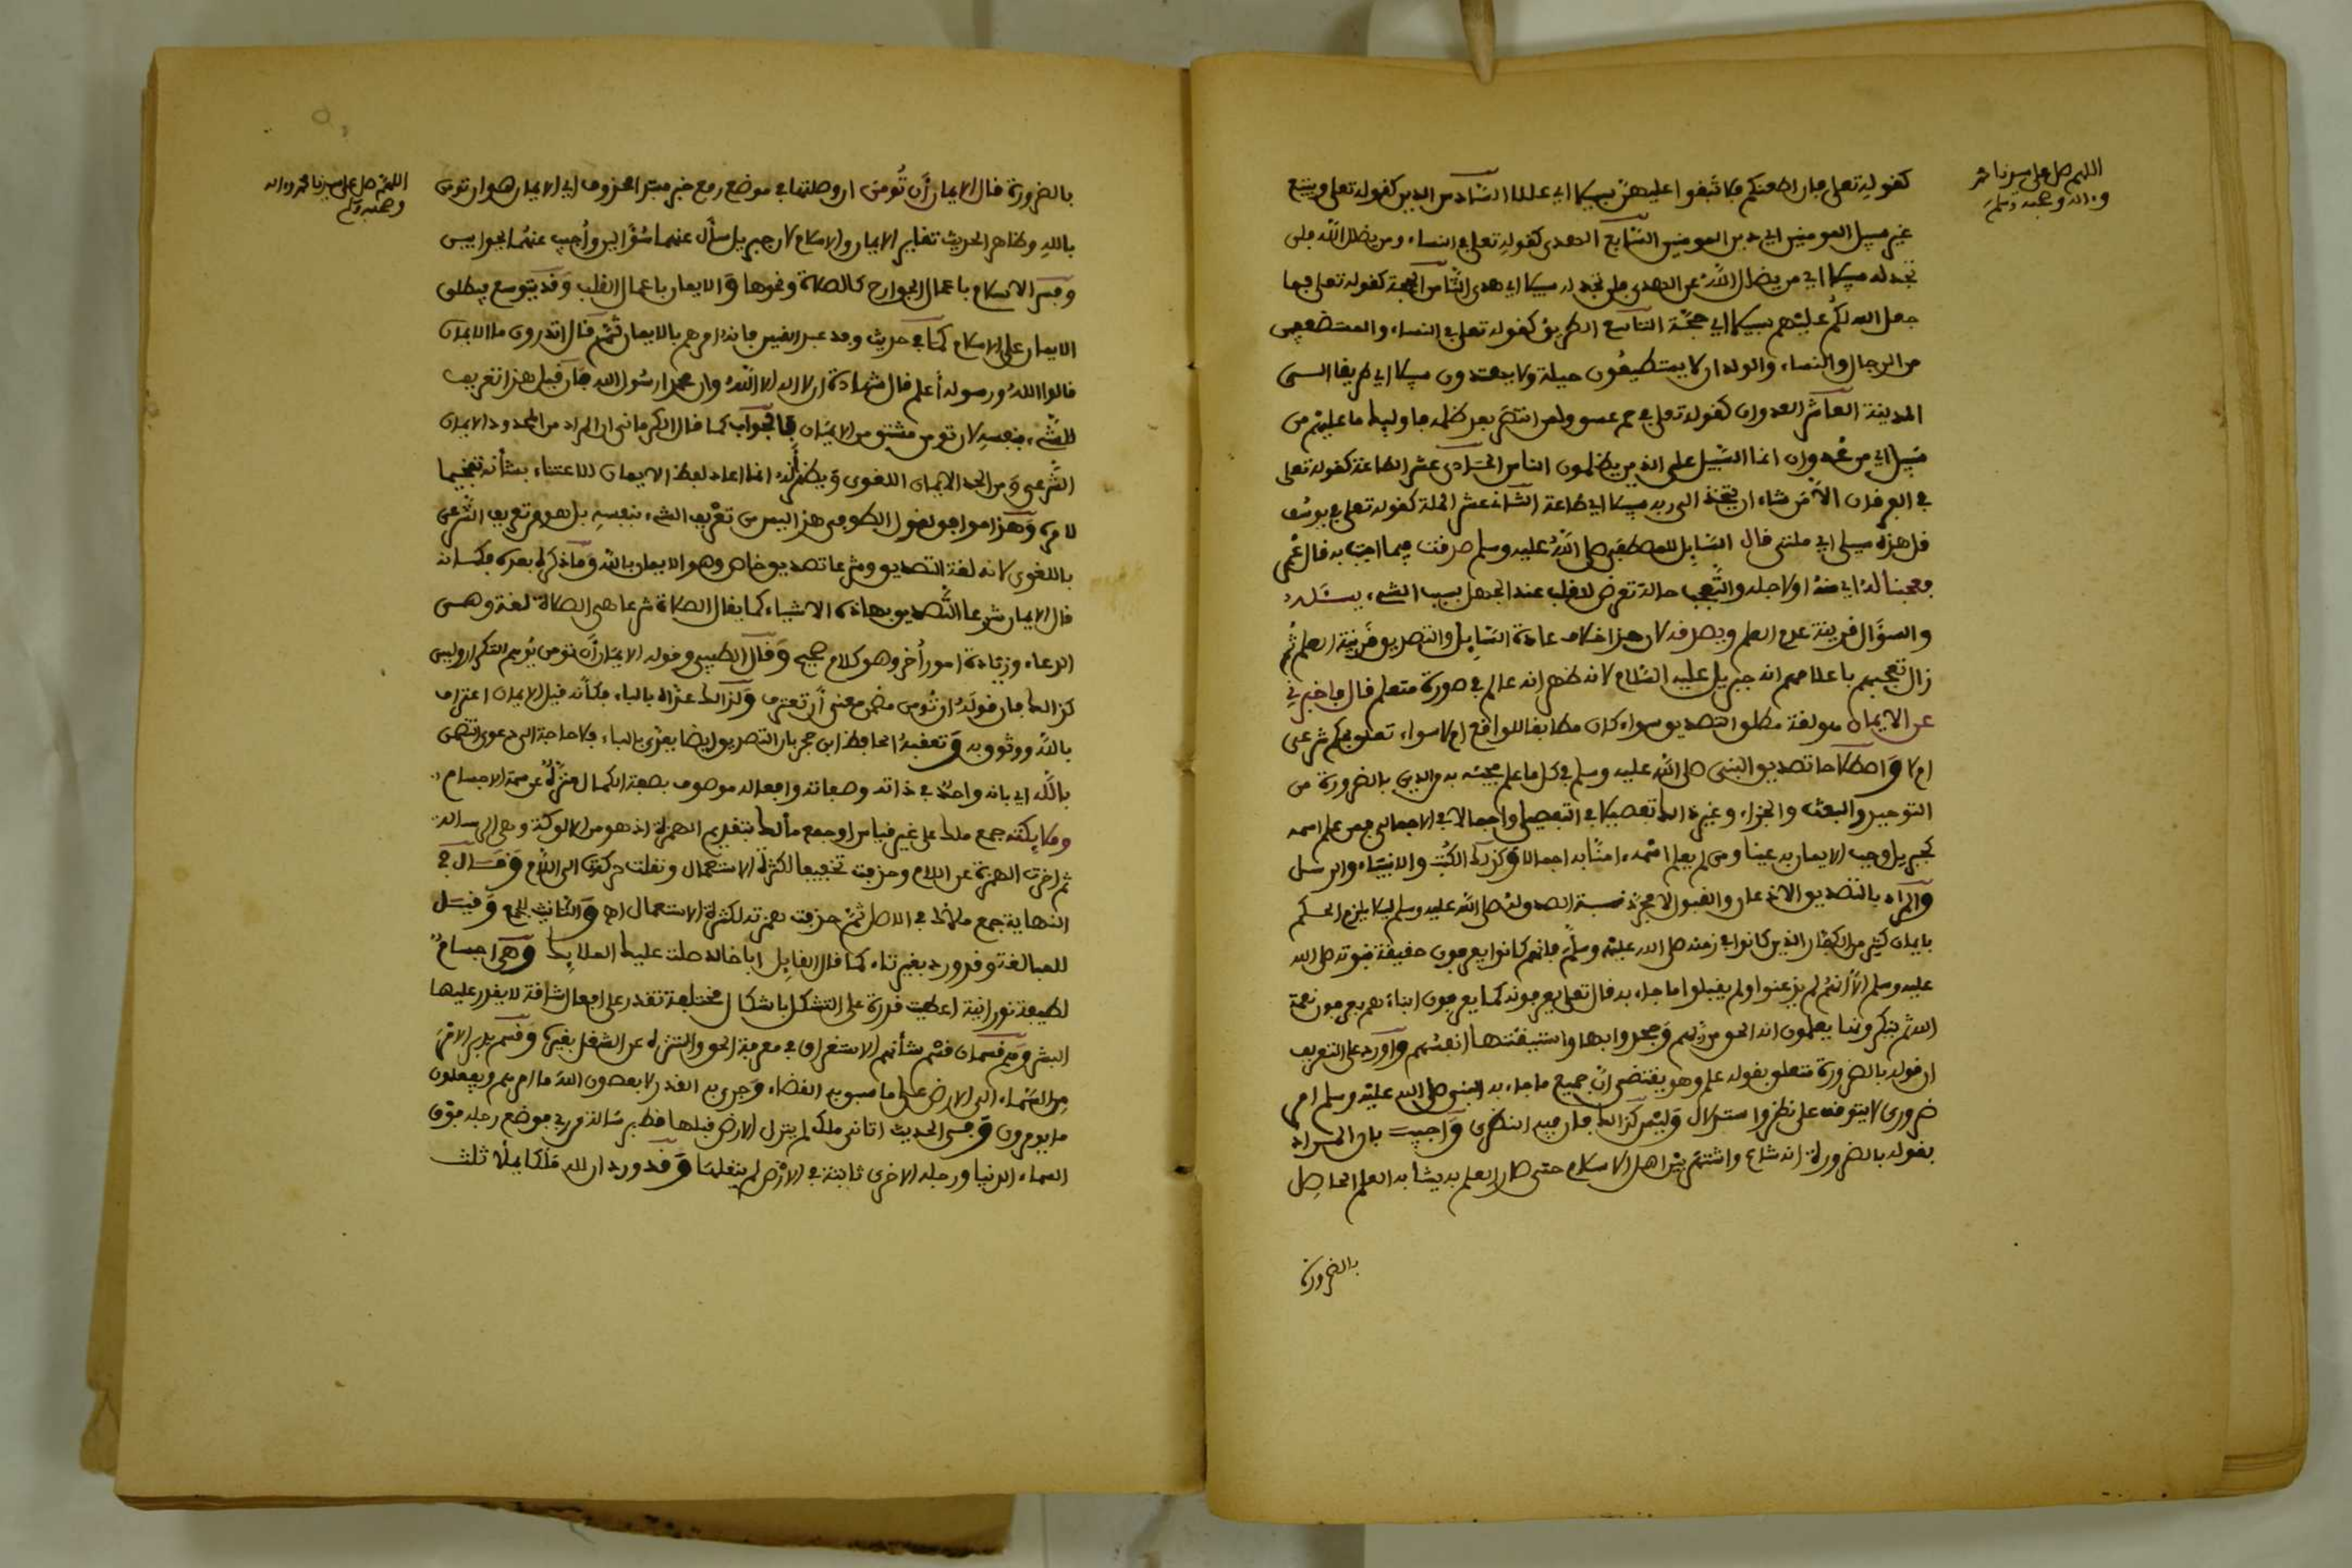 اللهم صل على سيدنا محمد
وءاله وصحبه وسلم
كقوله تعلى فإن اطعنكم فلا تبغوا عليهن سبيلا اي عللا السادس الدين كقوله تعلى ويتبع
غير سبيل المومنين اي دين المومنين السابع الهدى كقوله تعلى في النساء ومن يضلل الله فلن
تجد له سبيلا اي من يضلل الله عن الهدى فلن تجد له سبيلا اي هدى الثامن الحجة كقوله تعلى فما
جعل الله لكم عليهم سبيلا اي حجة التاسع الطريق كقوله تعلى في النساء والمستضعفين
من الرجال والنساء والولدان لا يستطيعون حيلة ولا يهتدون سبيلا اي طريقا الى
المدينة العاشر العدوان كقوله تعلى في حم عسق ولمن انتصر بعد ظلمه فاوليك ما عليهم من
سبيل اي من عدوان انما السبيل على الذين يظلمون الناس الحادي عشر الطاعة كقوله تعلى
في الفرقان الا من شاء ان يتخذ الى ربه سبيلا اي طاعة الثاني عشر الملة كقوله تعلى في يوسف
قل هذه سبيلي اي ملتي قال السايل للمصطفى صلى الله عليه وسلم صدقت فيما اجبت به قال عمر
فعجبنا له اي منه او لاجله والتعجب حالة تعرض للقلب عند الجهل بسبب الشيء يسئله
والسؤال قرينة عدم العلم ويصدقه لان هذا خلاف عادة السايل والتصديق قرينة العلم ثم
زال تعجبهم باعلامهم انه جبريل عليه السلام لانه ظهر انه عالم في صورة متعلم قال فاخبرني
عن الايمان هو لغة مطلق التصديق سواء كان مطابقا للواقع ام لا سواء تعلق بحكم شرعي
ام لا واصطلاحا تصديق النبي صلى الله عليه وسلم في كل ما علم مجيئه به من الدين بالضرورة من
التوحيد والبعث والجزاء وغير ذلك تفصيلا في التفصيلي واجمالا في الاجمالي فمن علم اسمه
كجبريل وجب الايمان به عينا ومن لم يعلم اسمه ءامنا به اجمالا وكذلك الكتب والانبياء والرسل
والمراد بالتصديق الاذعان والقبول لا مجرد نسبة الصدق له صلى الله عليه وسلم ليلا يلزم الحكم
بايمان كثير من الكفار الذين كانوا في زمنه صلى الله عليه وسلم فانهم كانوا يعرفون حقيقة نبوته صلى الله
عليه وسلم الا انهم لم يذعنوا ولم يقبلوا ما جاء به قال تعلى يعرفونه كما يعرفون ابناءهم يعرفون نعمة
الله ثم ينكرونها يعلمون انه الحق من ربهم وجحدوا بها واستيقنتها انفسهم واورد على التعريف
ان قوله بالضرورة متعلق بقوله علم وهو يقتضي ان جميع ما جاء به النبي صلى الله عليه وسلم امر
ضروري لا يتوقف على نظر واستدلال وليس كذلك فان فيه النظري واجيب بان المراد
بقوله بالضرورة انه شاع واشتهر بين اهل الاسلام حتى صار العلم به يشابه العلم الحاصل
بالضرورة
اللهم صل على سيدنا محمد وءاله
وصحبه وسلم
بالضرورة قال الايمان أن تُومن ان وصلتها في موضع رفع خبر مبتدا محذوف اي الايمان هو ان تومن
بالله وظاهر الحديث تغاير الايمان والاسلام لان جبريل سأل عنهما سؤالين واُجيب عنهما بجوابين
وفسر الاسلام باعمال الجوارح كالصلاة ونحوها والايمان باعمال القلب وقد يتوسع فيطلق
الايمان على الاسلام كما في حديث وفد عبد القيس فانه امرهم بالايمان ثم قال اتدرون ما الايمان
قالوا الله ورسوله أعلم قال شهادة ان لا اله الا الله وان محمدا رسول الله فان قيل هذا تعريف
للشيء بنفسه لان تومن مشتق من الايمان فالجواب كما قال الكرماني ان المراد من المحدود الايمان
الشرعي ومن الحد الايمان اللغوي ويظهر أنه انما اعاد لفظ الايمان للاعتناء بشأنه تفخيما
لامره وهذا موافق لقول الطوفي هذا ليس من تعريف الشيء بنفسه بل هو من تعريف الشرعي
باللغوي لانه لغة التصديق وشرعا تصديق خاص وهو الايمان بالله وما ذكر له بعده فكأنه
قال الايمان شرعا التصديق بهاذه الاشياء كما يقال الصلاة شرعا هي الصلاة لغة وهي
الدعاء وزيادة امور أخر وهو كلام صحيح وقال الطيبي وقوله الايمان أن تومن يُوهم التكرار وليس
كذلك فان قوله ان تُومن مضمن معنى أن تعترف ولذلك عداه بالباء فكأنه قيل الايمان اعتراف
بالله ووثوق به وتعقبه الحافظ ابن حجر بان التصديق ايضا يعدى بالباء فلا حاجة الى دعوى التضمين
بالله اي بانه واحد في ذاته وصفاته وافعاله موصوف بصفة الكمال منزه عن سمة الاجسام
وملايكته جمع ملك على غير قياس او جمع مألك بتقديم الهمزة اذ هو من الالوكة وهي الرسالة
ثم اخرت الهمزة عن اللام وحذفت تخفيفا لكثرة الاستعمال ونقلت حركتها الى اللام وقال في
النهاية جمع ملأك في الاصل ثم حذفت همزته لكثرة الاستعمال اه والتأنيث للجمع وقيل
للمبالغة وقد ورد بغير تاء كما قال القايل أبا خالد صلت عليك الملايك وهي اجسام
لطيفة نورانية اعطيت قدرة على التشكل باشكال مختلفة تقدر على افعال شاقة لا يقدر عليها
البشر وهم قسمان قسم شأنهم الاستغراق في معرفة الحق والتنزه عن الشغل بغيره وقسم يدبر الامر
من السماء الى الارض على ما سبق به القضاء وجرى به القدر لا يعصون الله ما امرهم ويفعلون
ما يومرون وفي الحديث اتاني ملك لم ينزل الارض قبلها قط برسالة من ربي فوضع رجله فوق
السماء الدنيا ورجله الاخرى ثابتة في الارض لم ينقلها وقد ورد ان لله ملكا يملأ ثلث